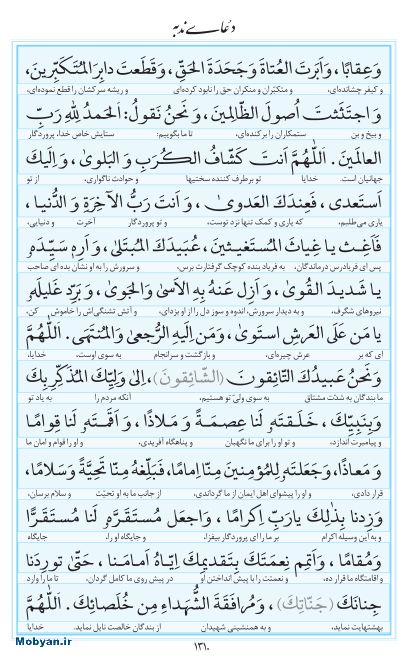 دعای ندبه
وَعِقابًا، وَاَبَرتَ العُتاةَ وَجَحَدَةَ الحَقِّ، وَقَطَعتَ دابِرَ المُتَكَبِّرينَ،
و کیفر چشانده‌ای، و متکبّران و منکران حق را نابود کرده‌ای و ریشه سرکشان را قطع نموده‌ای،
وَاجتَثَثتَ اُصولَ الظّالِمينَ، وَنَحنُ نَقولُ: اَلحَمدُ لِلّٰهِ رَبِّ
و بیخ و بن ستمکاران را برکنده‌ای، تا ما بگوییم: ستایش خاص خدا، پروردگار
العالَمينَ. اَللّٰهُمَّ اَنتَ كَشّافُ الكُرَبِ وَالبَلوىٰ، وَاِلَيكَ
جهانیان است. خدایا تو برطرف کننده سختیها و حوادث ناگواری، از تو
اَستَعدى، فَعِندَكَ العَدوىٰ، وَاَنتَ رَبُّ الآخِرَةِ وَالدُّنيا،
یاری می‌طلبم، که یاری و کمک تنها نزد توست، و تو پروردگار آخرت و دنیایی،
فَاَغِث يا غِياثَ المُستَغيثينَ، عُبَيدَكَ المُبتَلىٰ، وَاَرِهِ سَيِّدَهُ
پس ای فریادرس درماندگان، به فریاد بنده کوچک گرفتارت برس، و سرورش را به او نشان بده ای صاحب
يا شَديدَ القُوىٰ، وَاَزِل عَنهُ بِهِ الاَسىٰ وَالجَوىٰ، وَبَرِّد غَليلَهُ
نیروهای شگرف، و به دیدار سرورش، اندوه و سوز دل را از او بزدای، و آتش تشنگی‌اش را خاموش کن،
يا مَن عَلَى العَرشِ استَوىٰ، وَمَن اِلَيهِ الرُّجعىٰ وَالمُنتَهىٰ. اَللّٰهُمَّ
ای که بر عرش چیره‌ای، و بازگشت و سرانجام به سوی اوست. خدایا،
وَنَحنُ عَبيدُكَ التّائِقونَ (الشّائِقونَ)، اِلىٰ وَلِيِّكَ المُذَكِّرِ بِكَ
ما بندگان به شدّت مشتاق به سوی ولیّ تو هستیم، آنکه مردم را به یاد تو
وَبِنَبِيِّكَ، خَلَقتَهُ لَنا عِصمَةً وَمَلاذًا، وَاَقَمتَهُ لَنا قِوامًا
و پیامبرت اندازد، و تو او را برای ما نگهبان و پناهگاه آفریدی، و او را قوام و امان ما
وَمَعاذًا، وَجَعَلتَهُ لِلمُؤمِنينَ مِنّا اِمامًا، فَبَلِّغهُ مِنّا تَحِيَّةً وَسَلامًا،
قرار دادی، و او را پیشوای اهل ایمان از ما گرداندی، از جانب ما به او تحیّت و سلام برسان،
وَزِدنا بِذٰلِكَ يا رَبِّ اِكرامًا، وَاجعَل مُستَقَرَّهُ لَنا مُستَقَرًّا
و به این وسیله اکرام بر ما را ای پروردگار بیفزا، و جایگاه او را، جایگاه
وَمُقامًا، وَاَتمِم نِعمَتَكَ بِتَقديمِكَ اِيّاهُ اَمامَنا، حَتّىٰ تورِدَنا
و اقامتگاه ما قرار ده، و نعمتت را با پیش انداختن او در پیش روی ما کامل گردان، تا ما را وارد
جِنانَكَ (جَنّاتِكَ)، وَمُرافَقَةَ الشُّهَداءِ مِن خُلَصائِكَ. اَللّٰهُمَّ
بهشتهایت نماید، و به همنشینی شهیدان از بندگان خالصت نایل نماید. خدایا،
۱۳۱۰
Mobyan.ir